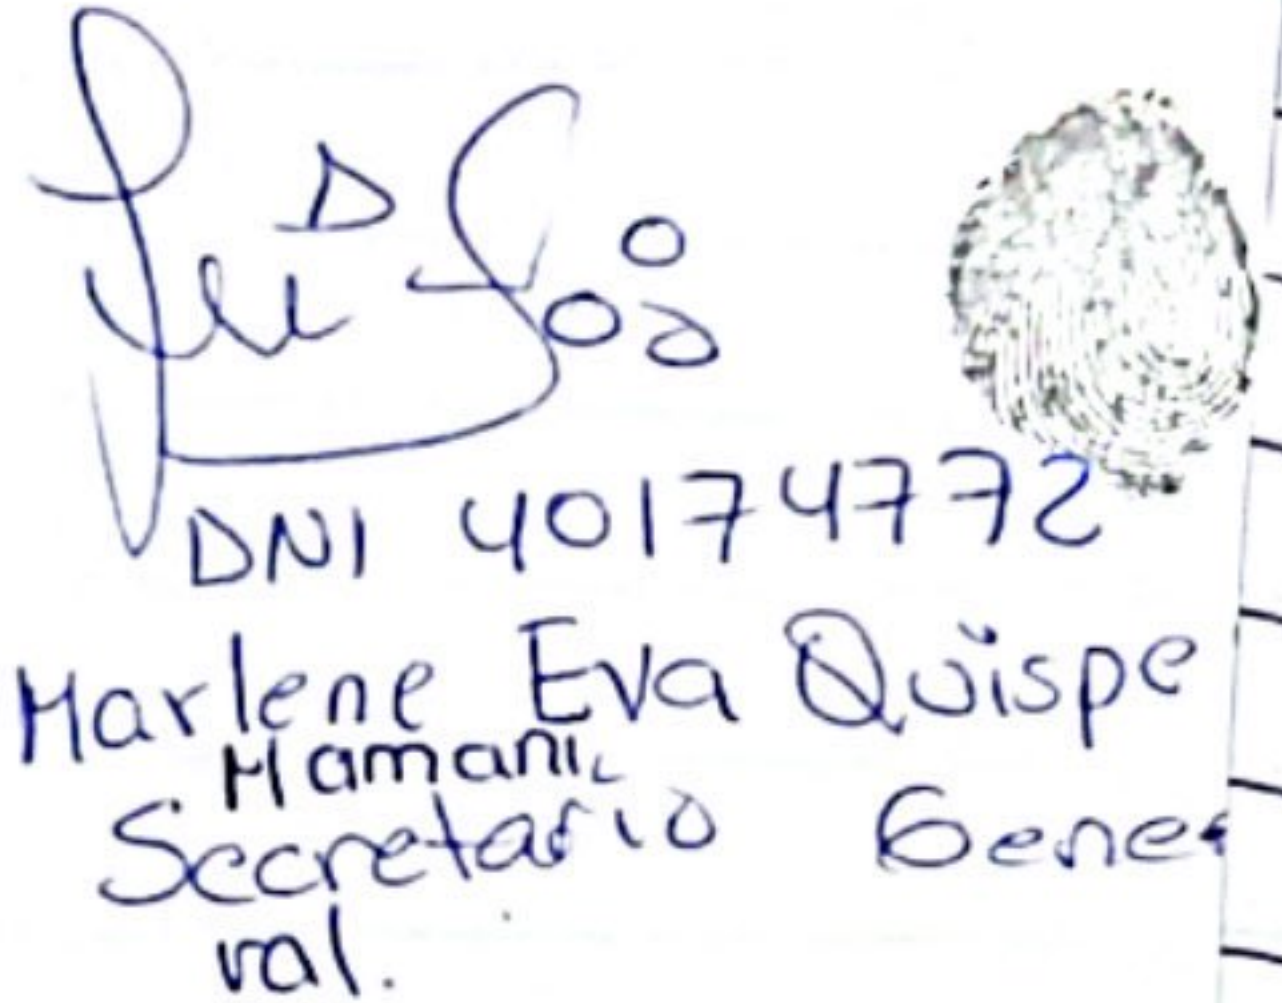 DNI 40174772
Marlene Eva Quispe
Mamani.
Secretario Gene
ral.